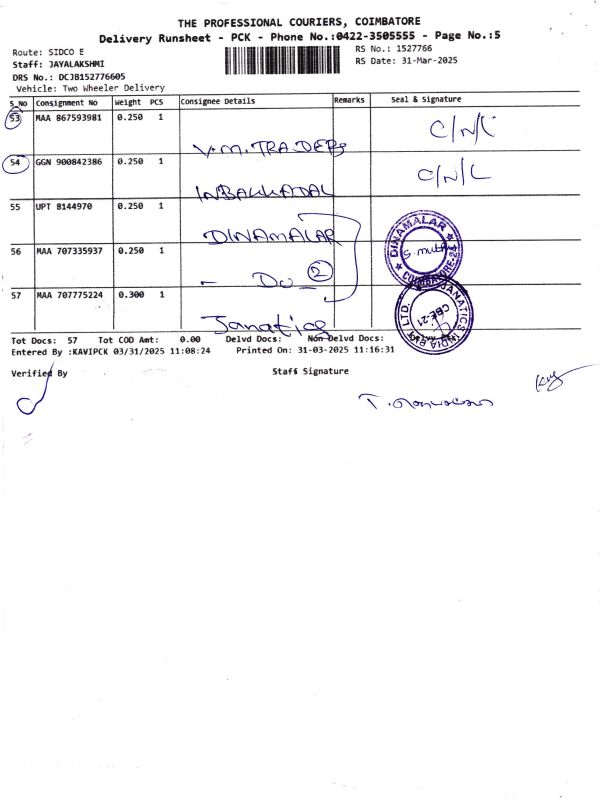 THE PROFESSIONAL COURIERS, COIMBATORE
Delivery Runsheet - PCK - Phone No.:0422-3505555 - Page No.:5
Route: SIDCO E
RS No.: 1527766
Staff: JAYALAKSHMI
RS Date: 31-Mar-2025
DRS No.: DCJB152776605
Vehicle: Two Wheeler Delivery
S_No Consignment No Weight PCS Consignee Details Remarks Seal & Signature
53 MAA 867593981 0.250 1 V.M.TRADERS C/N/L
54 GGN 900842386 0.250 1 C/N/L
55 UPT 8144970 0.250 1 DINAMALAR
DINAMALAR
COIMBATORE-24
56 MAA 707335937 0.250 1 - Do - 2
57 MAA 707775224 0.300 1 Janatics
JANATICS INDIA PVT LTD.
CBE-21
Tot Docs: 57 Tot COD Amt: 0.00 Delvd Docs: Non Delvd Docs:
Entered By :KAVIPCK 03/31/2025 11:08:24 Printed On: 31-03-2025 11:16:31
Verified By Staff Signature